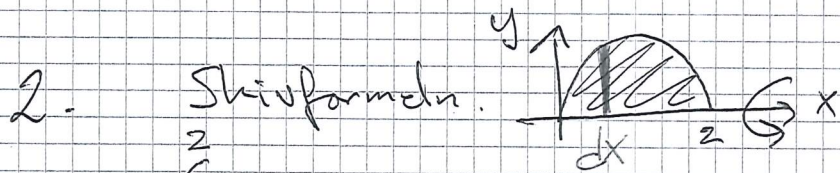 y
2. Skivformeln. x
dx 2
2